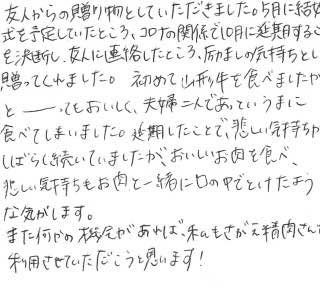 友人からの贈り物としていただきました。5月に結婚
式を予定していたところ、コロナの関係で10月に延期するこ
を決断し、友人に連絡したところ、励ましの気持ちとし
贈ってくれました。 初めて山形牛を食べましたが
と ──── ってもおいしく、夫婦二人であっというまに
食べてしまいました。延期したことで、悲しい気持ちが
しばらく続いていましたが、おいしいお肉を食べ、
悲しい気持ちもお肉と一緒に口の中でとけたよう
な気がします。
また何かの機会があれば、私もさがえ精肉さんで
利用させていただこうと思います!